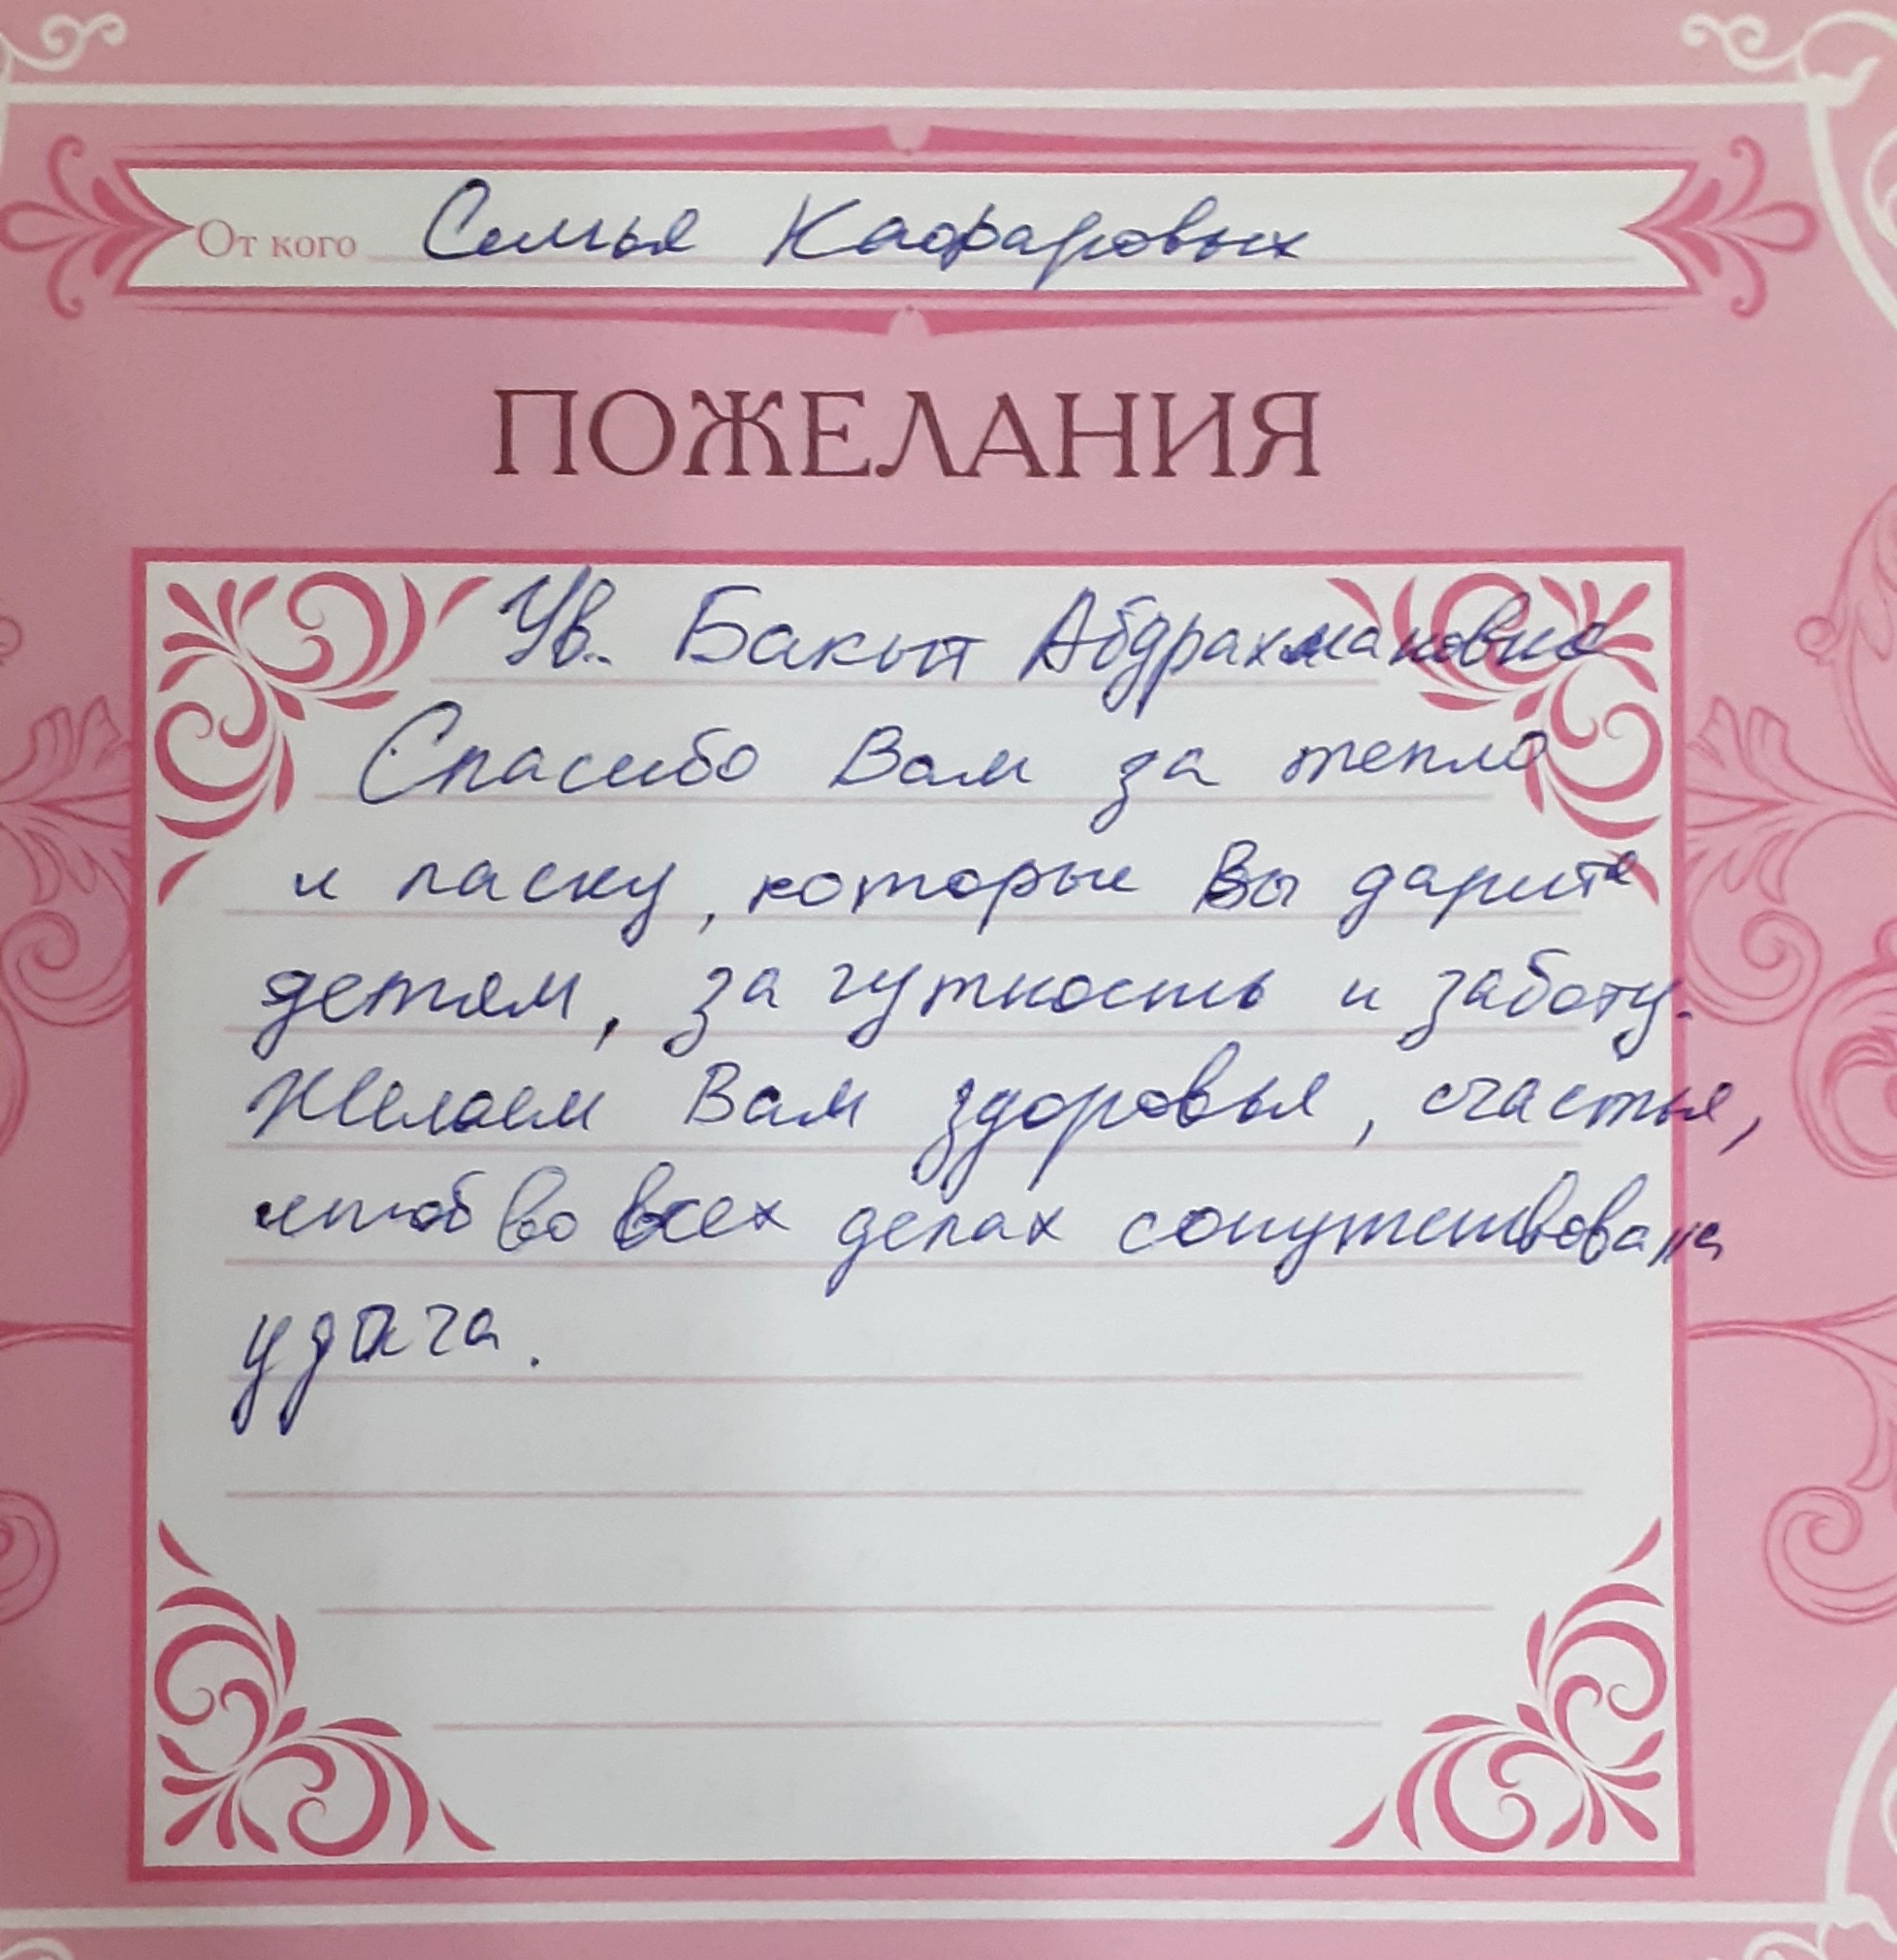 От кого Семья Кафаровых
ПОЖЕЛАНИЯ
Ув. Бакыт Абдрахмановна
Спасибо Вам за тепло
и ласку, которые Вы дарите
детям, за чуткость и заботу.
Желаем Вам здоровья, счастья,
чтоб во всех делах сопутствовала
удача.